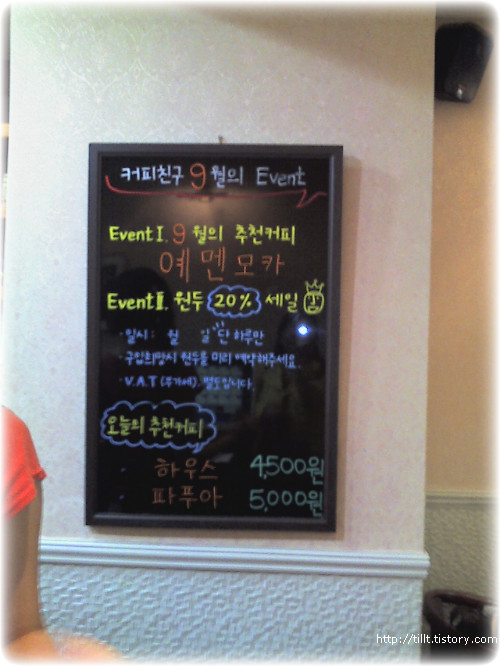 커피친구 9월의 Event
Event I. 9월의 추천커피
예멘모카
Event II. 원두 20% 세일
· 일시 : 월 일 단 하루만
· 구입희망시 원두를 미리 예약해주세요.
· V.A.T (부가세). 별도입니다.
오늘의 추천커피
· 하우스 4,500원
· 파푸아 5,000원
http://tillt.tistory.com